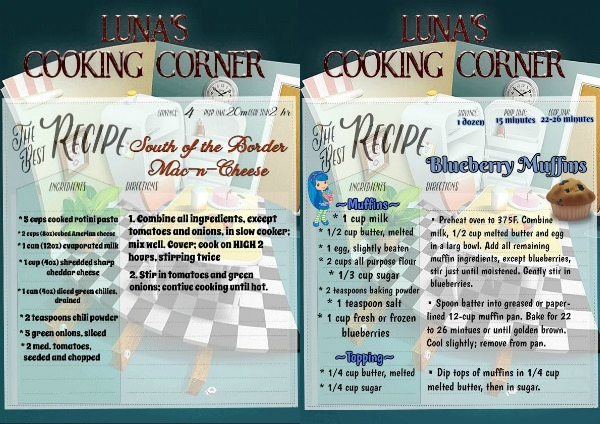 LUNA'S
COOKING CORNER
SERVINGS: 4 PREP TIME: 20m COOK TIME: 2 hr
THE BEST RECIPE
South of the Border
Mac-n-Cheese
INGREDIENTS
DIRECTIONS
* 5 cups cooked rotini pasta
* 2 cups (8oz) cubed American cheese
* 1 can (12oz) evaporated milk
* 1 cup (4oz) shredded sharp
cheddar cheese
* 1 can (4oz) diced green chilies,
drained
* 2 teaspoons chili powder
* 3 green onions, sliced
* 2 med. tomatoes,
seeded and chopped
1. Combine all ingredients, except
tomatoes and onions, in slow cooker;
mix well. Cover; cook on HIGH 2
hours, stirring twice
2. Stir in tomatoes and green
onions; contive cooking until hot.
LUNA'S
COOKING CORNER
SERVINGS: 1 dozen PREP TIME: 15 minutes COOK TIME: 22-26 minutes
THE BEST RECIPE
Blueberry Muffins
INGREDIENTS
DIRECTIONS
~Muffins~
* 1 cup milk
* 1/2 cup butter, melted
* 1 egg, slightly beaten
* 2 cups all purpose flour
* 1/3 cup sugar
* 2 teaspoons baking powder
* 1 teaspoon salt
* 1 cup fresh or frozen
blueberries
~Topping~
* 1/4 cup butter, melted
* 1/4 cup sugar
• Preheat oven to 375F. Combine
milk, 1/2 cup melted butter and egg
in a larg bowl. Add all remaining
muffin ingredients, except blueberries,
stir just until moistened. Gently stir in
blueberries.
• Spoon batter into greased or paper-
lined 12-cup muffin pan. Bake for 22
to 26 mintues or until golden brown.
Cool slightly; remove from pan.
• Dip tops of muffins in 1/4 cup
melted butter, then in sugar.